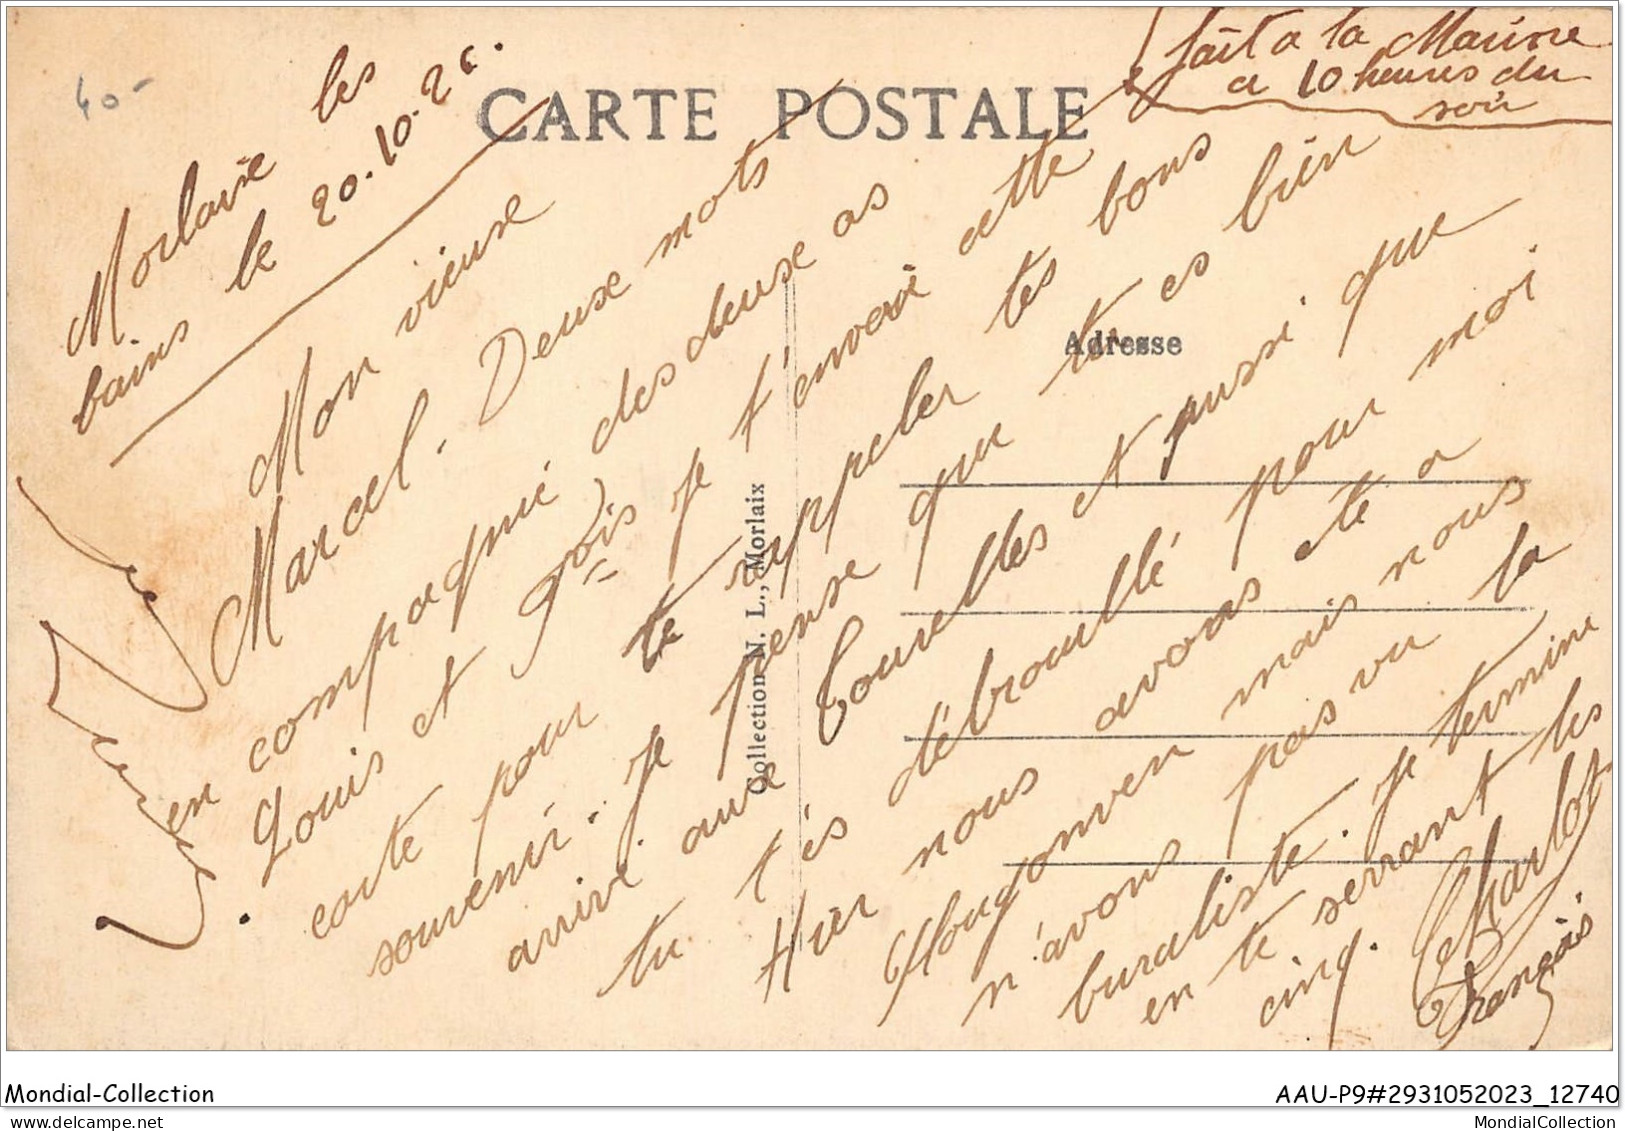 40-
fait a la Mairie
a 10 heures du
soir
CARTE POSTALE
Morlaixe les
bains le 20.10.26.
Mon vieuxe
Marcel. Deuxe mots
en compagnie des deuxe as
Louis et Fois je t'envoie cette
carte pour te rappeler tes bons
souvenir. je pense que tu es bien
arrivé auxe Tourelles et aussi que
tu t'es débrouillé pour moi
Hier nous avons été a
Plougonven mais nous
n'avons pas vu la
buraliste. je termine
en te serrant les
cinq. Charlot
François
Adresse
Collection N. L., Morlaix
Mondial-Collection
AAU-P9#2931052023_12740
MondialCollection